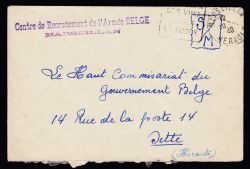 Centre de Recrutement de l'Armée BELGE
MARSEILLAN
S
M
40
HERAULT
Le Haut Commissariat du
Gouvernement Belge
14 Rue de la poste 14
Sette
(Herault)